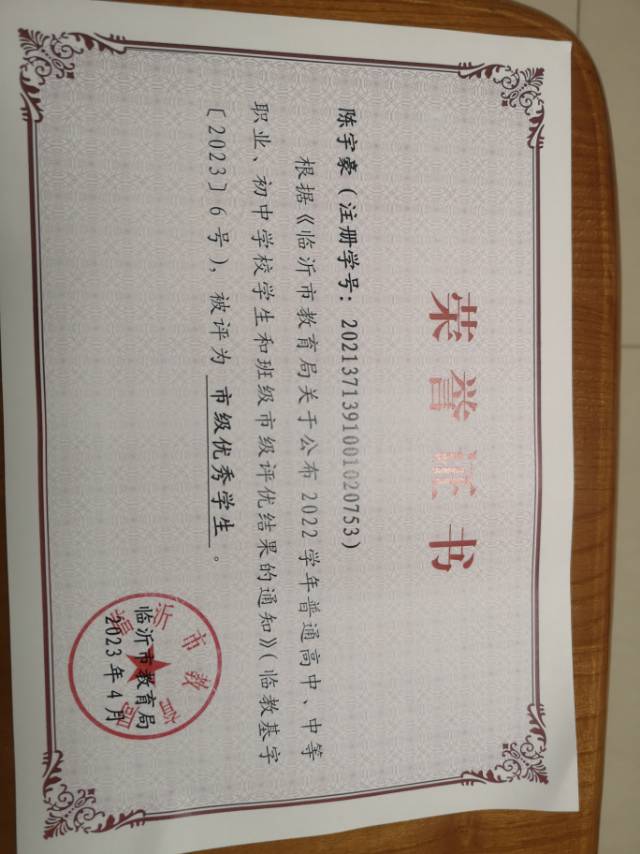 荣誉证书
陈宇豪（注册学号：2021371391001020753）
根据《临沂市教育局关于公布2022学年普通高中、中等
职业、初中学校学生和班级市级评优结果的通知》（临教基字
〔2023〕6号），被评为 市级优秀学生 。
临沂市教育局
2023年4月